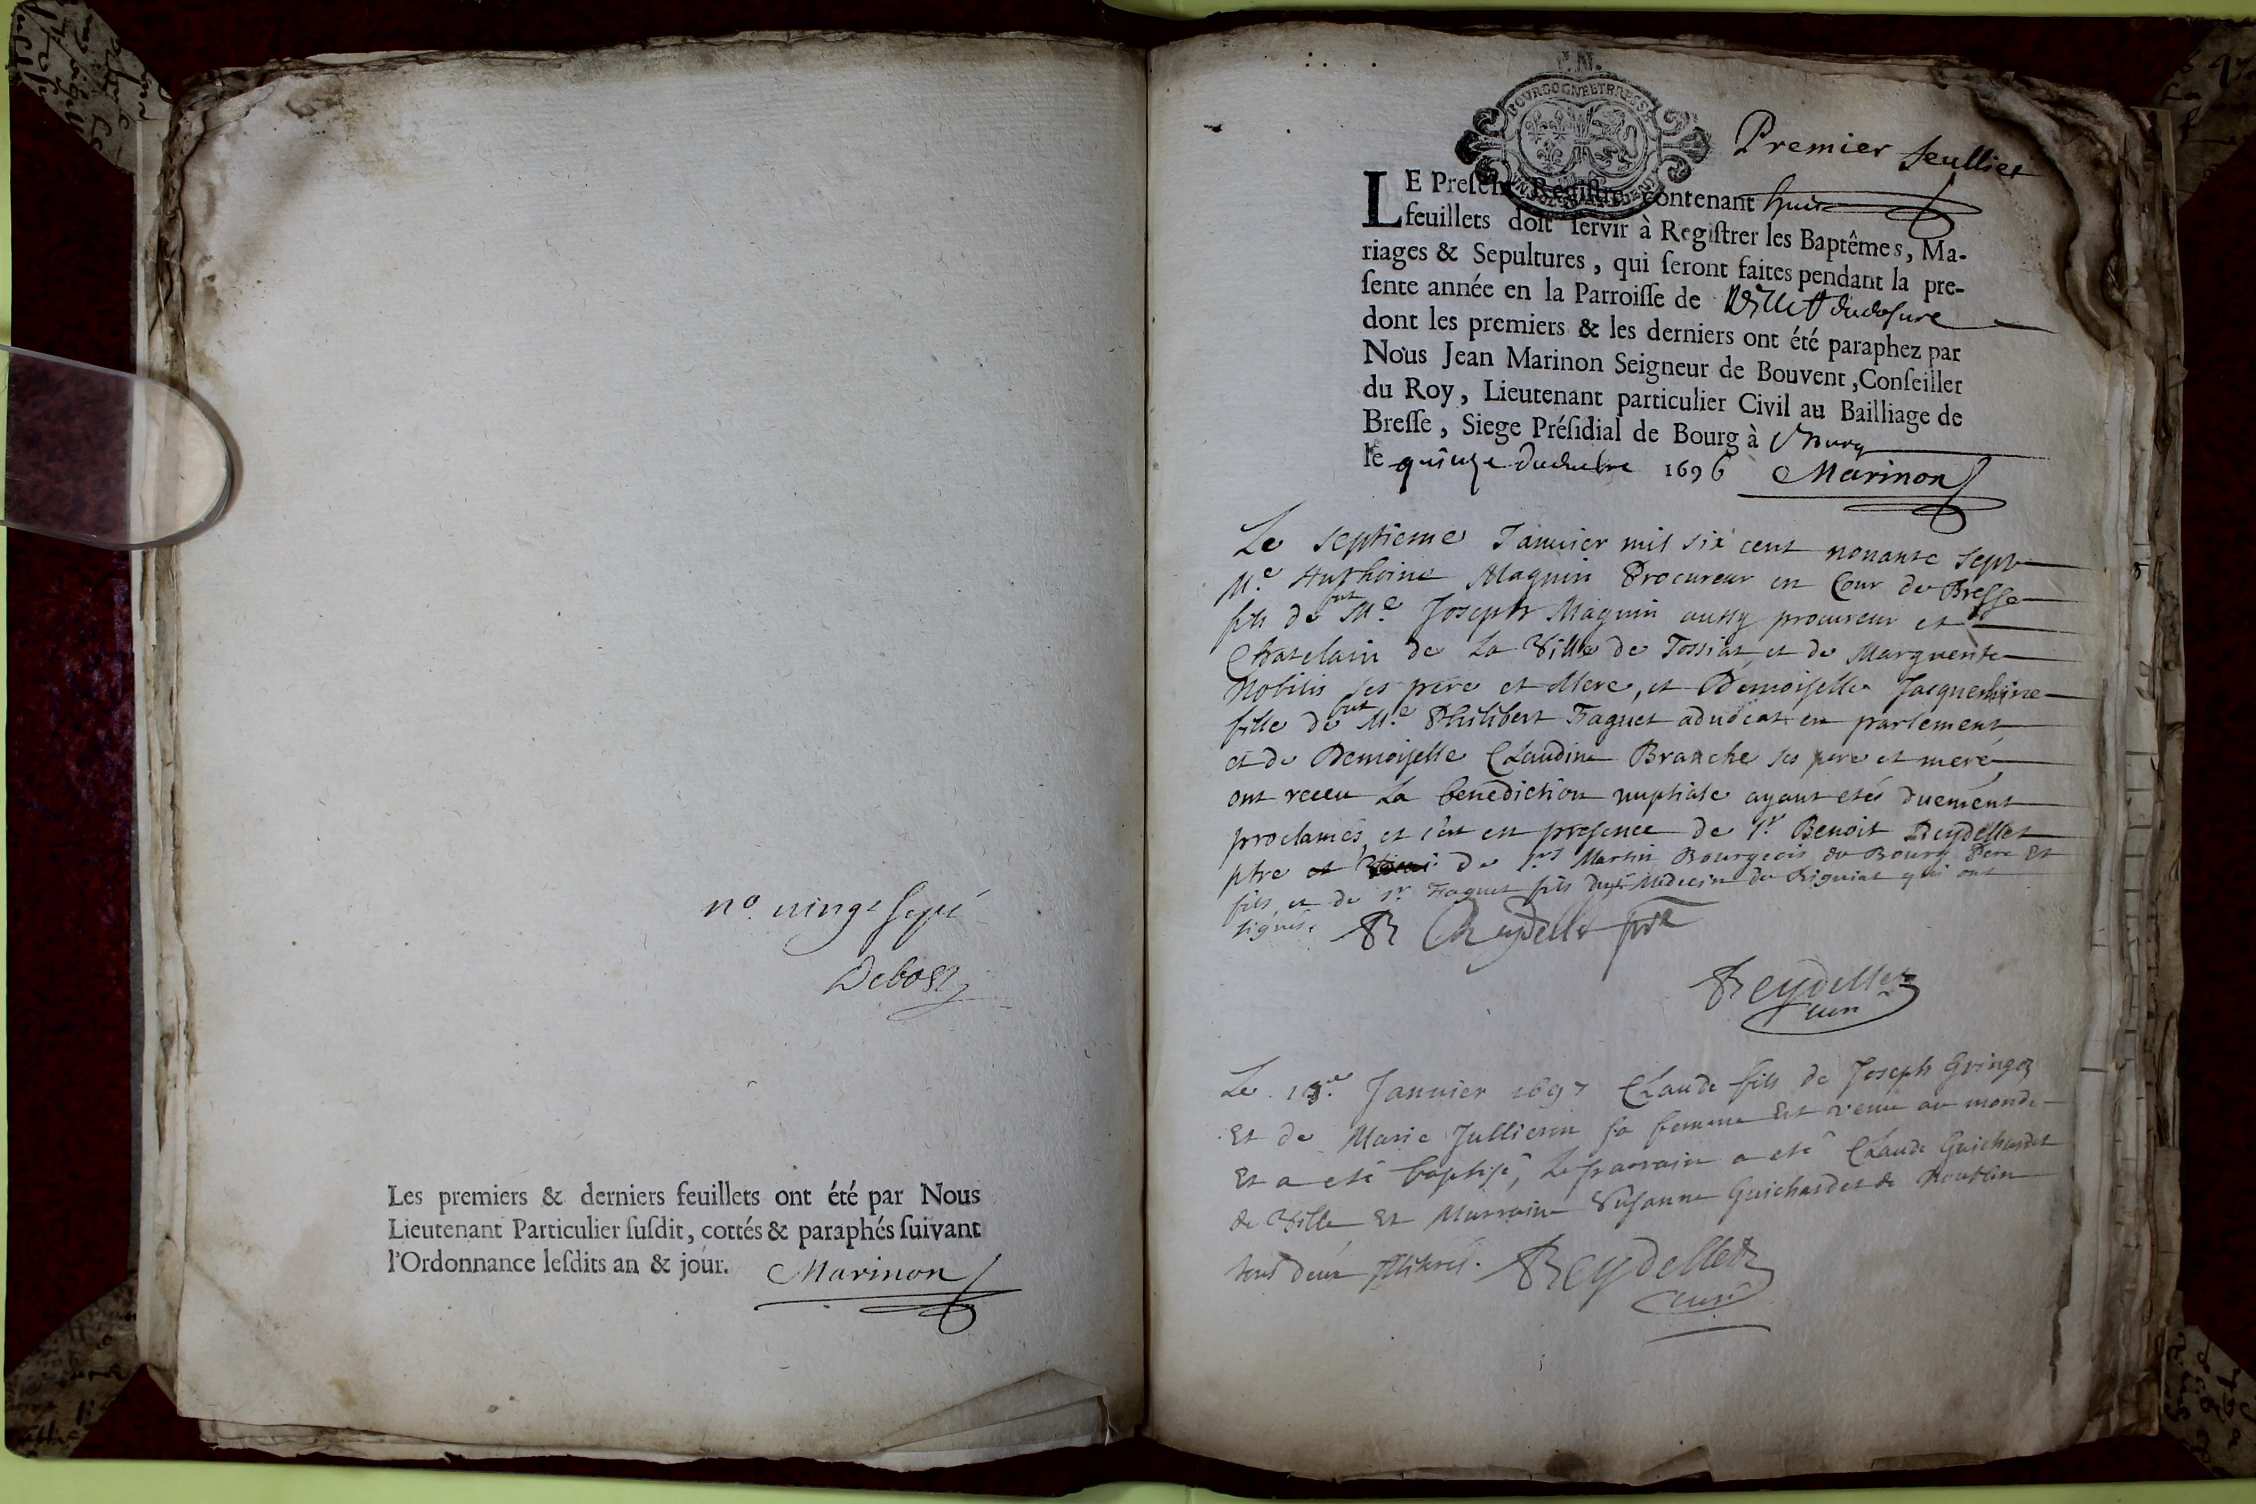 no. vingt sept
Debost
Les premiers & derniers feuillets ont été par Nous
Lieutenant Particulier ſuſdit, cottés & paraphés ſuivant
l'Ordonnance leſdits an & jour. Marinon
BOURGOGNE ET BRESSE
Premier feuillet
LE Preſent Regiſtre contenant huit
feuillets doit ſervir à Regiſtrer les Baptêmes, Ma-
riages & Sepultures, qui ſeront faites pendant la pre-
ſente année en la Parroiſſe de
dont les premiers & les derniers ont été paraphez par
Nous Jean Marinon Seigneur de Bouvent, Conſeiller
du Roy, Lieutenant particulier Civil au Bailliage de
Breſſe, Siege Préſidial de Bourg à Bourg
le quinze 1696 Marinon
Le septieme Januier mil six cent nonante sept
Me. Anthoine Maguin Procureur en Cour de Bresse
fils de fut Me. Joseph Maguin aussy procureur et
Chatelain de La Ville de Tossiat, et de Marguerite
Nobilis ses pere et Mere, et Demoiselle Jacquemine
fille de fut Me. Philibert Faguet aduocat en parlement
et de Demoiselle Claudine Branche ses pere et mere,
ont receu La benediction nuptiale ayant etés duement
proclamés, et c'est en presence de Sr. Benoit Reydellet
ptre et de Srs Martin Bourgeois de Bourg Pere Et
fils, et de Sr. Faguet fils Medecin de Rigniat qui ont
signés. Reydellet ptre
Reydellet
curé
Le Januier 1697 Claude fils de Joseph Gringoz
Et de Marie Jullieron sa femme Est venu au monde
Et a eté baptisé, Le parrain a eté Claude Guichardet
de Ville, Et Marraine Susanne Guichardet de
tous deux illitérés. Reydellet
curé